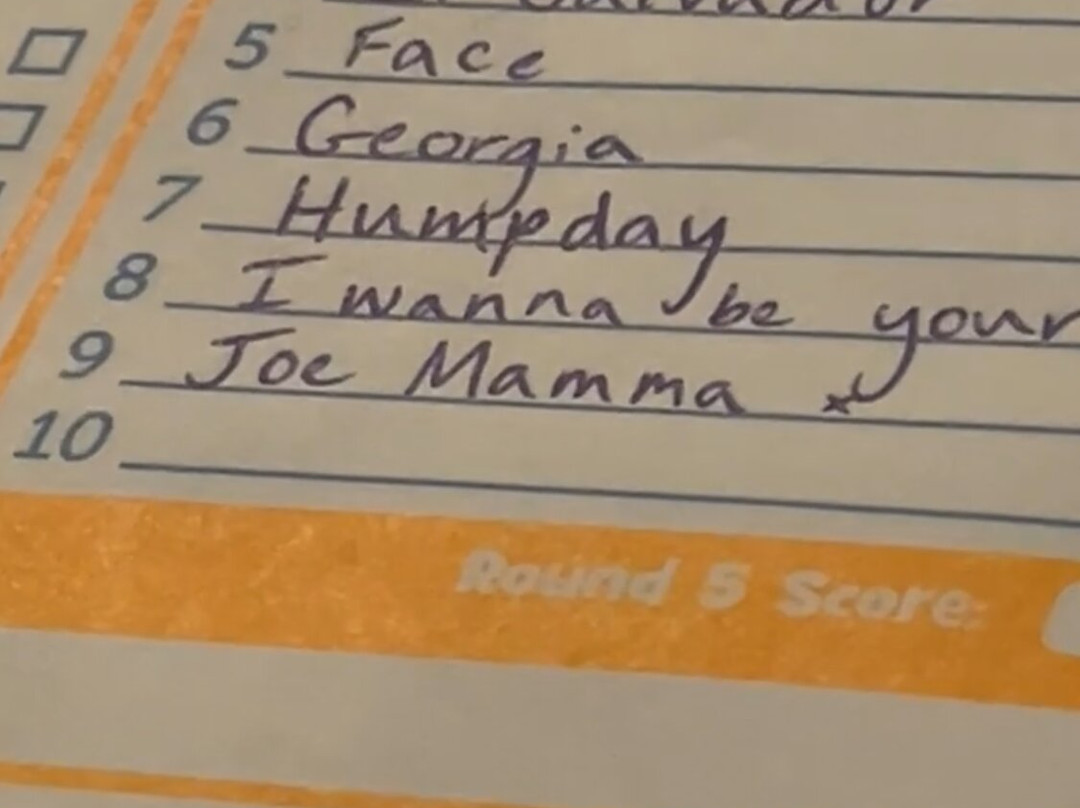 5 Face
6 Georgia
7 Humpday
8 I wanna be your
9 Joe Mamma
10
Round 5 Score: